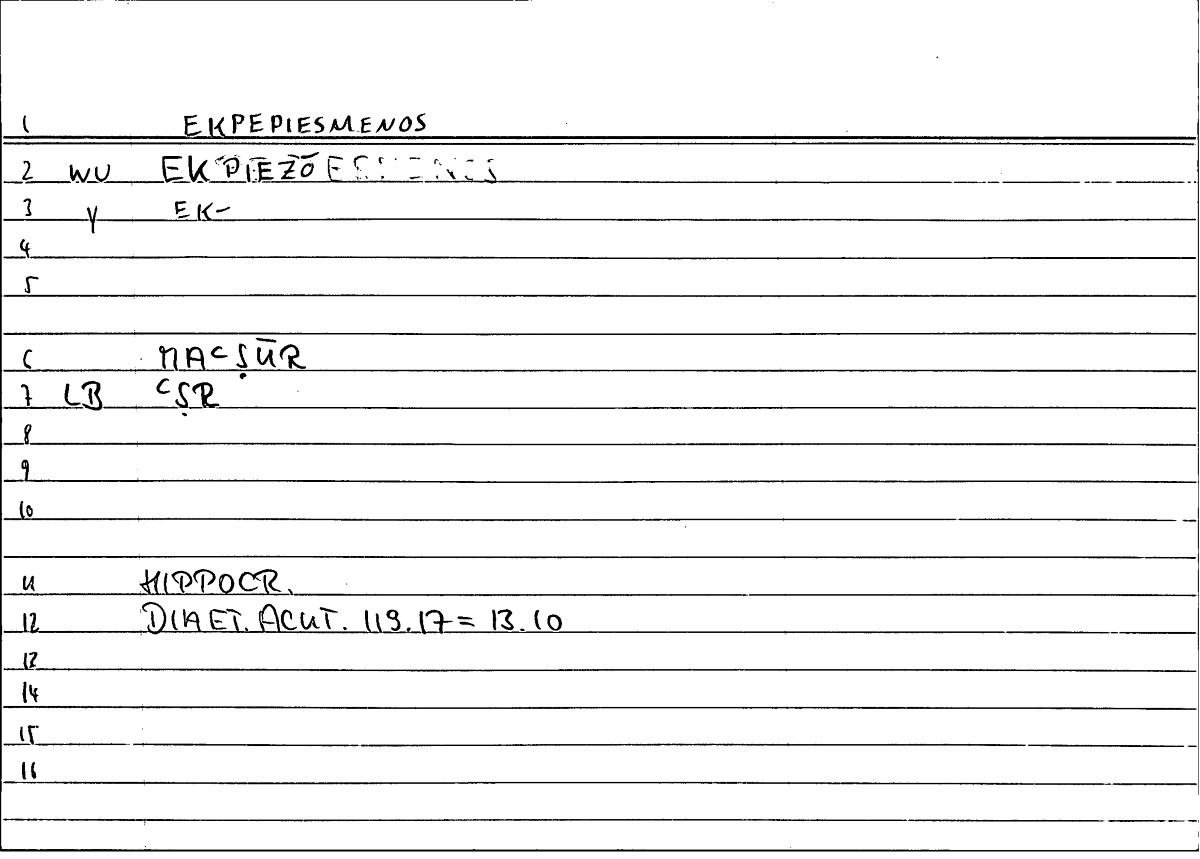 1 EKPEPIESMENOS
2 WU EKPIEZŌ
3 Y EK-
4
5
6 MAʿṢŪR
7 LB ʿṢR
8
9
10
11 HIPPOCR.
12 DIAET. ACUT. 119.17 = 13.10
13
14
15
16